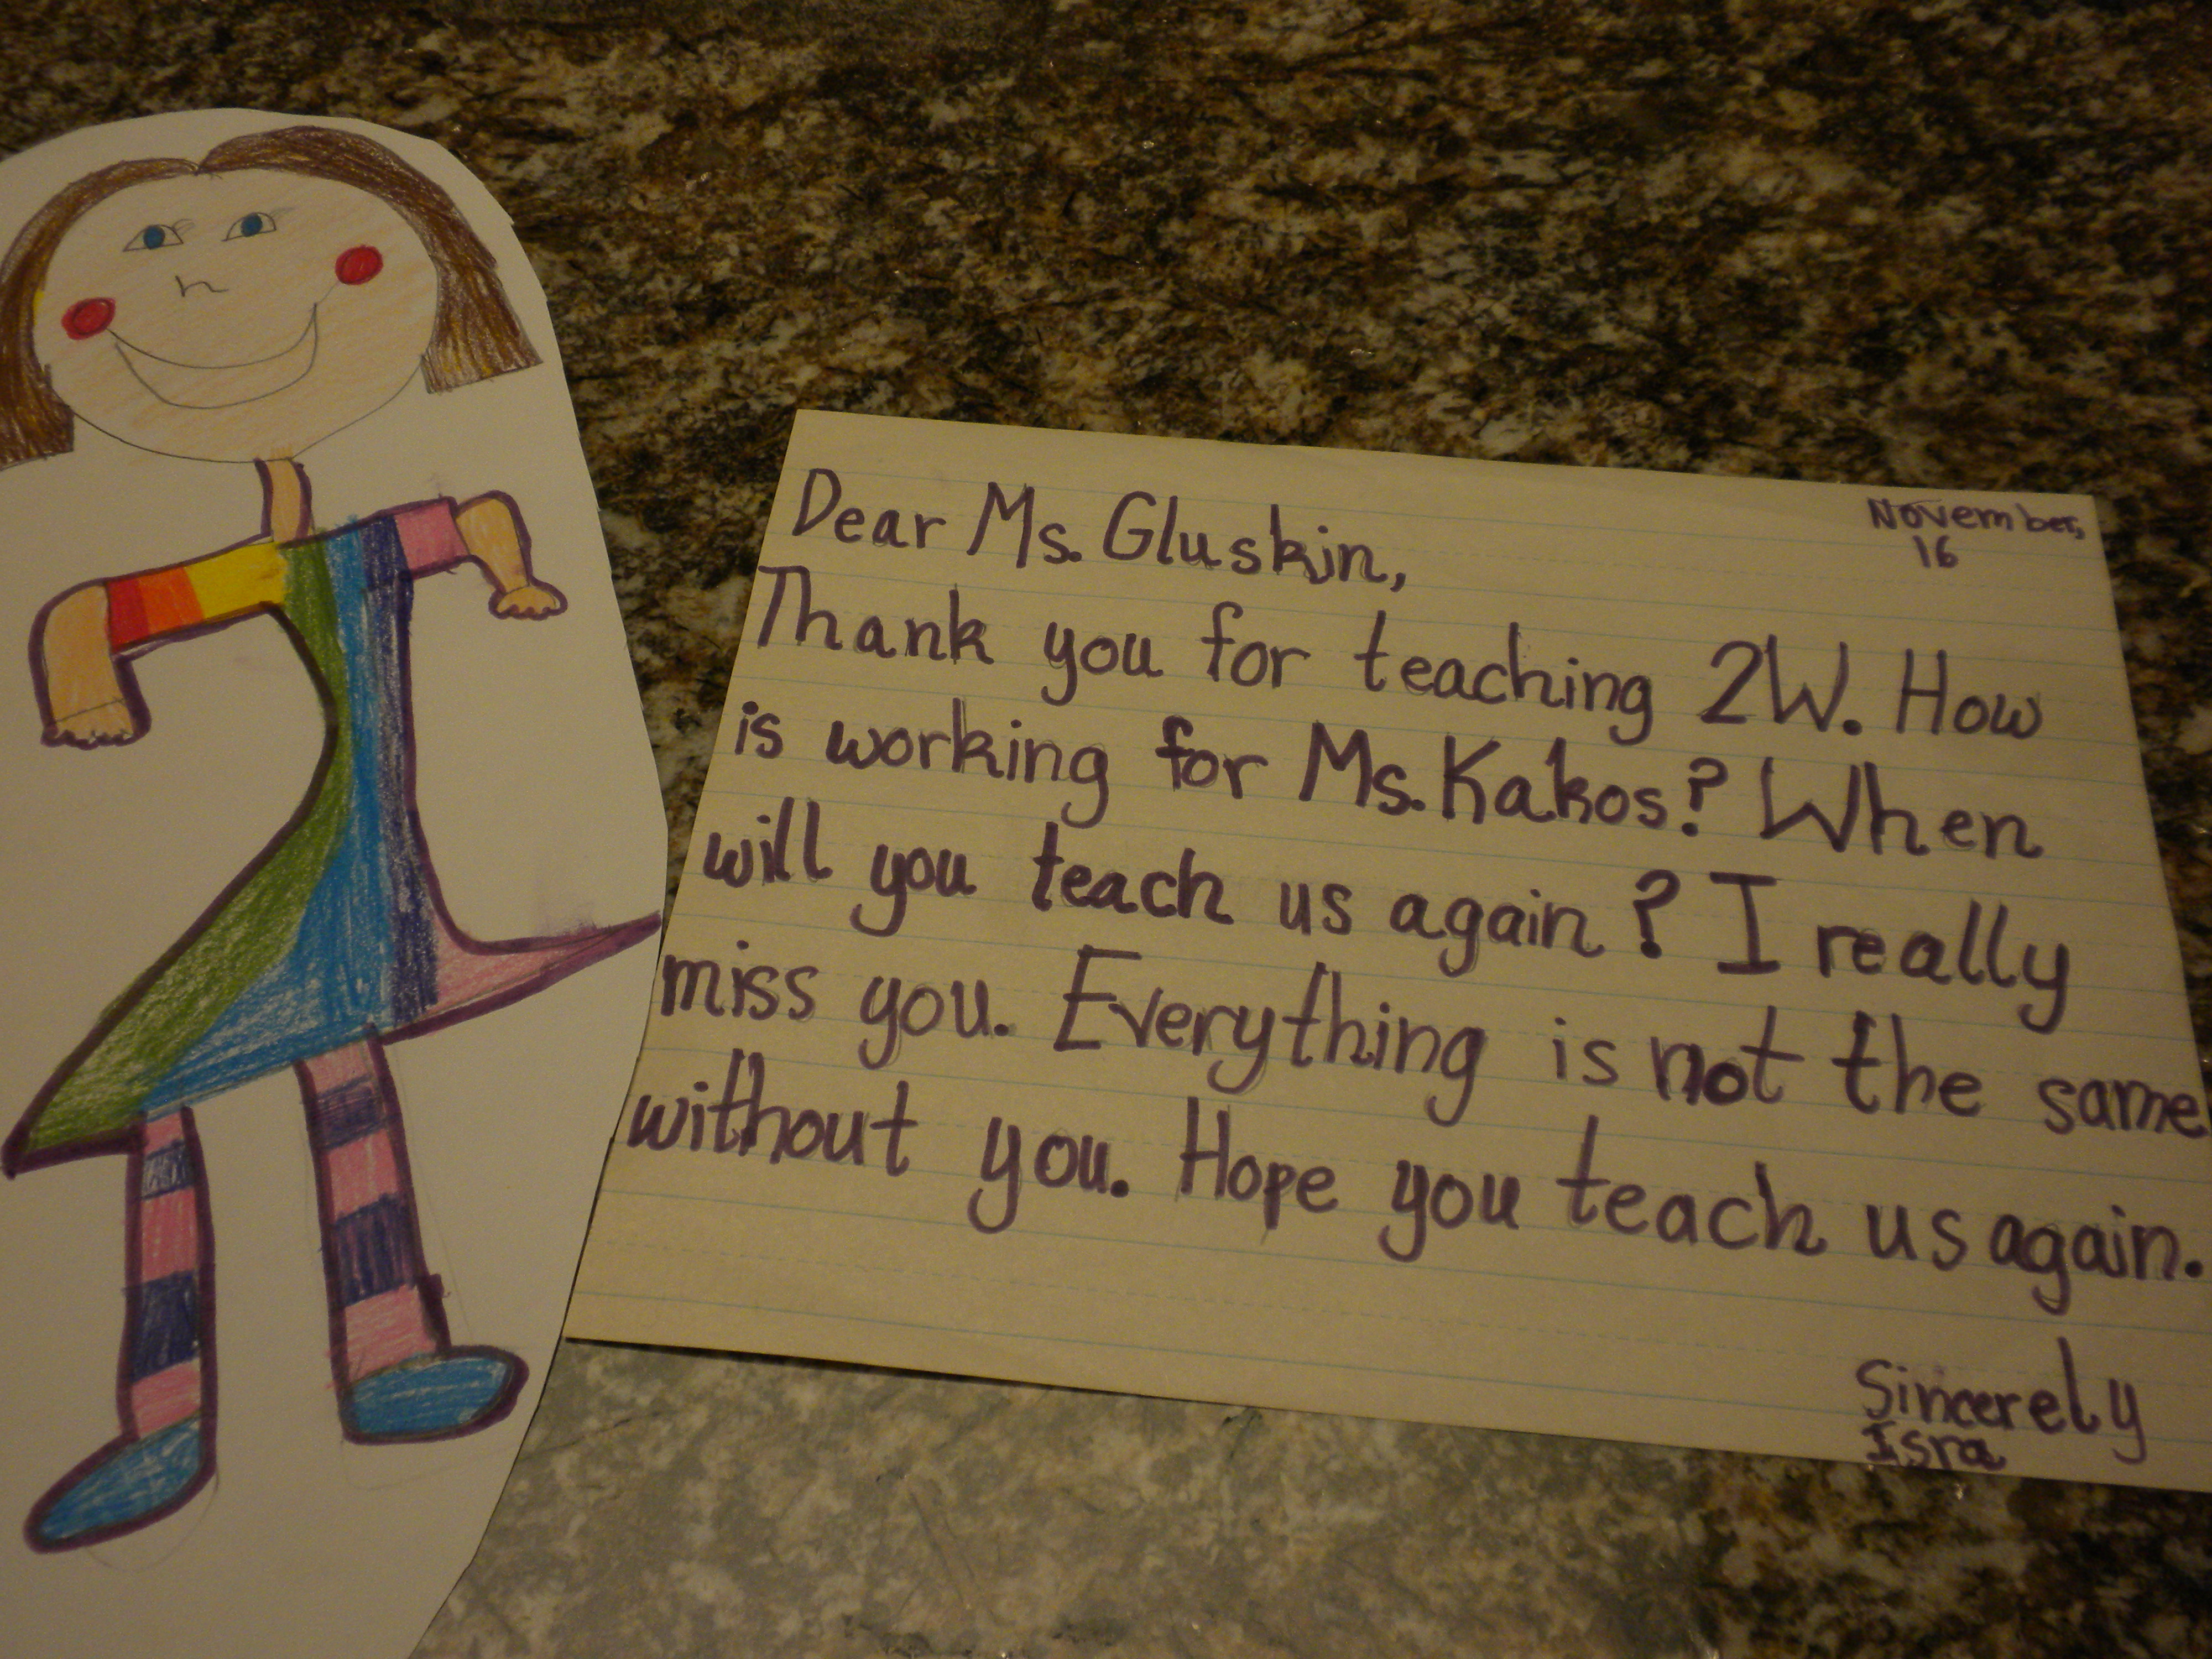 November,
16
Dear Ms. Gluskin,
Thank you for teaching 2W. How
is working for Ms. Kakos? When
will you teach us again? I really
miss you. Everything is not the same
without you. Hope you teach us again.
Sincerely
Isra